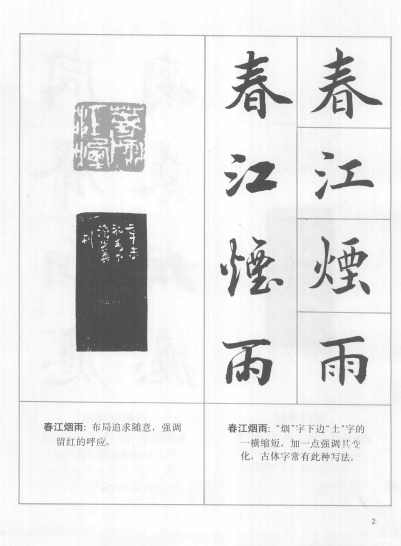 春江煙雨
春江煙雨
春江烟雨：布局追求随意，强调
留红的呼应。
春江烟雨：“烟”字下边“土”字的
一横缩短，加一点强调其变
化，古体字常有此种写法。
2